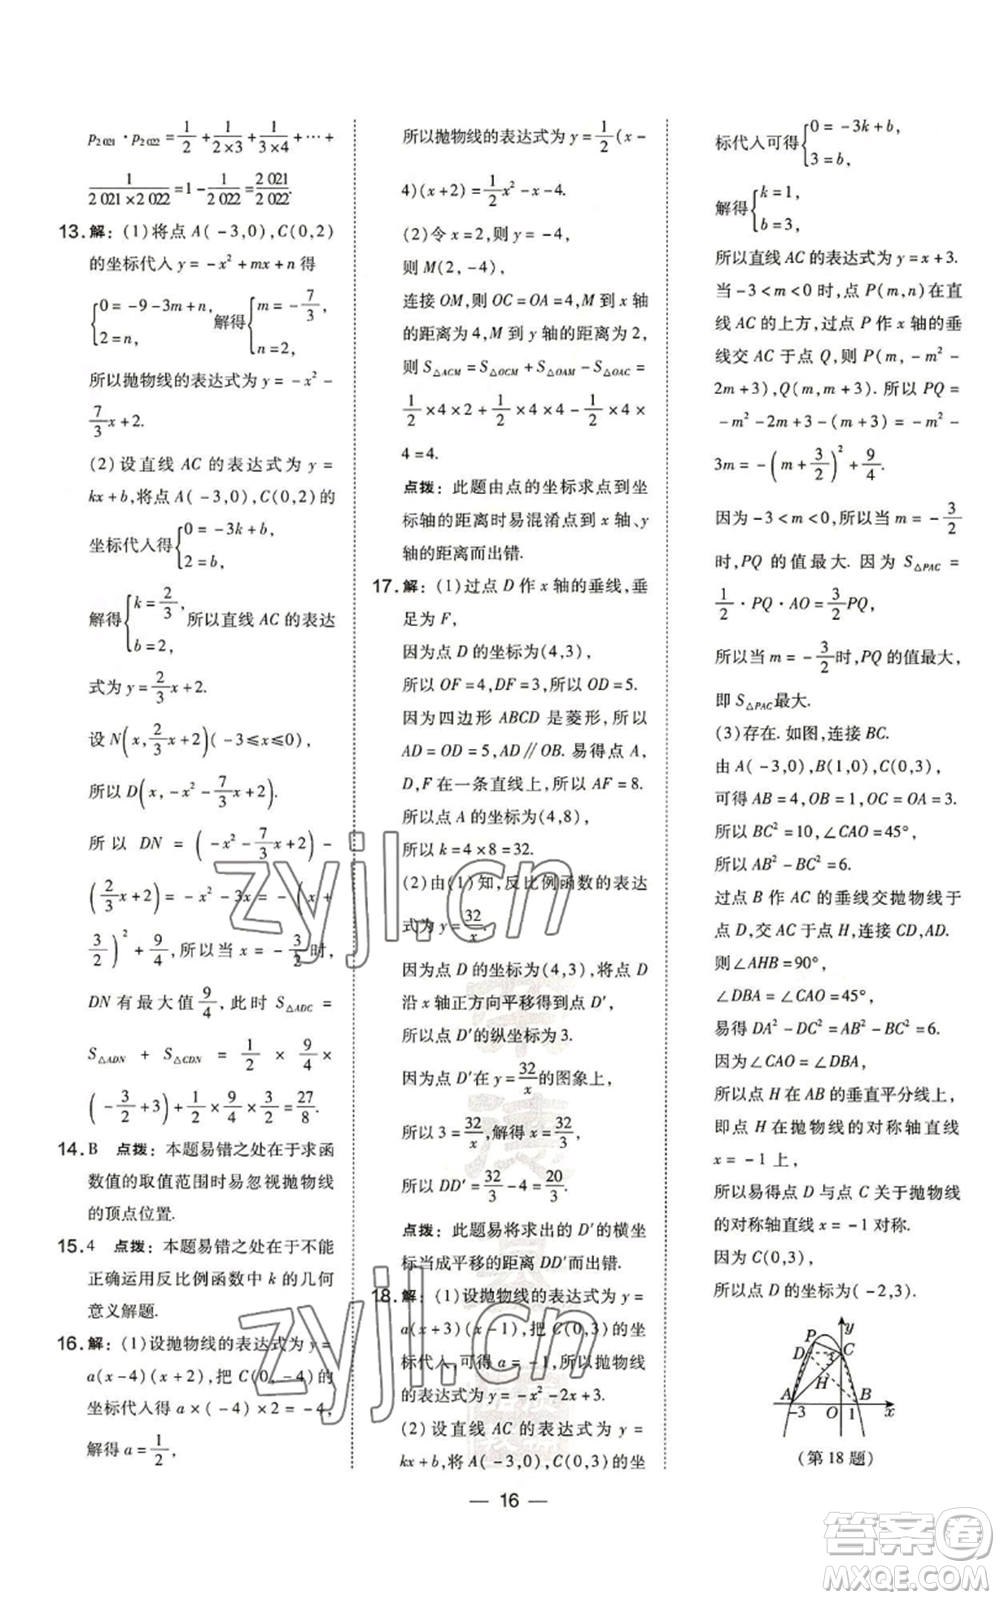 p₂₀₂₁ · p₂₀₂₂ = 1/2 + 1/(2×3) + 1/(3×4) + ⋯ +
1/(2 021×2 022) = 1 - 1/2 022 = 2 021/2 022.
13. 解: (1)将点 A(-3,0),C(0,2)
的坐标代入 y = -x² + mx + n 得
{0 = -9 - 3m + n, 2 = n, 解得 {m = -7/3, n = 2,
所以抛物线的表达式为 y = -x² -
7/3 x + 2.
(2)设直线 AC 的表达式为 y =
kx + b,将点 A(-3,0),C(0,2)的
坐标代入得 {0 = -3k + b, 2 = b,
解得 {k = 2/3, b = 2, 所以直线 AC 的表达
式为 y = 2/3 x + 2.
设 N(x, 2/3 x + 2)(-3≤x≤0),
所以 D(x, -x² - 7/3 x + 2).
所以 DN = (-x² - 7/3 x + 2) -
(2/3 x + 2) = -x² - 3x = -(x +
3/2)² + 9/4,所以当 x = -3/2 时,
DN 有最大值 9/4,此时 S△ADC =
S△ADN + S△CDN = 1/2 × 9/4 ×
(-3/2 + 3) + 1/2 × 9/4 × 3/2 = 27/8.
14. B 点拨: 本题易错之处在于求函
数值的取值范围时易忽视抛物线
的顶点位置.
15. 4 点拨: 本题易错之处在于不能
正确运用反比例函数中 k 的几何
意义解题.
16. 解: (1)设抛物线的表达式为 y =
a(x-4)(x+2),把 C(0,-4)的
坐标代入得 a×(-4)×2 = -4,
解得 a = 1/2,
所以抛物线的表达式为 y = 1/2 (x -
4)(x+2) = 1/2 x² - x - 4.
(2)令 x = 2,则 y = -4,
则 M(2,-4),
连接 OM,则 OC = OA = 4,M 到 x 轴
的距离为 4,M 到 y 轴的距离为 2,
则 S△ACM = S△OCM + S△OAM - S△OAC =
1/2 ×4×2 + 1/2 ×4×4 - 1/2 ×4×
4 = 4.
点拨: 此题由点的坐标求点到坐
标轴的距离时易混淆点到 x 轴、y
轴的距离而出错.
17. 解: (1)过点 D 作 x 轴的垂线,垂
足为 F,
因为点 D 的坐标为(4,3),
所以 OF = 4,DF = 3,所以 OD = 5.
因为四边形 ABCD 是菱形,所以
AD = OD = 5,AD∥OB. 易得点 A,
D,F 在一条直线上,所以 AF = 8.
所以点 A 的坐标为(4,8),
所以 k = 4×8 = 32.
(2)由(1)知,反比例函数的表达
式为 y = 32/x.
因为点 D 的坐标为(4,3),将点 D
沿 x 轴正方向平移得到点 D′,
所以点 D′的纵坐标为 3.
因为点 D′在 y = 32/x 的图象上,
所以 3 = 32/x,解得 x = 32/3,
所以 DD′ = 32/3 - 4 = 20/3.
点拨: 此题易将求出的 D′的横坐
标当成平移的距离 DD′而出错.
18. 解: (1)设抛物线的表达式为 y =
a(x+3)(x-1),把 C(0,3)的坐
标代入,可得 a = -1,所以抛物线
的表达式为 y = -x² - 2x + 3.
(2)设直线 AC 的表达式为 y =
kx + b,将 A(-3,0),C(0,3)的坐
标代入可得 {0 = -3k + b, 3 = b,
解得 {k = 1, b = 3.
所以直线 AC 的表达式为 y = x + 3.
当 -3<m<0 时,点 P(m,n)在直
线 AC 的上方,过点 P 作 x 轴的垂
线交 AC 于点 Q,则 P(m, -m² -
2m+3),Q(m,m+3). 所以 PQ =
-m² - 2m + 3 - (m+3) = -m² -
3m = -(m + 3/2)² + 9/4.
因为 -3<m<0,所以当 m = -3/2
时,PQ 的值最大. 因为 S△PAC =
1/2 · PQ · AO = 3/2 PQ,
所以当 m = -3/2 时,PQ 的值最大,
即 S△PAC 最大.
(3)存在. 如图,连接 BC.
由 A(-3,0),B(1,0),C(0,3),
可得 AB = 4,OB = 1,OC = OA = 3.
所以 BC² = 10,∠CAO = 45°,
所以 AB² - BC² = 6.
过点 B 作 AC 的垂线交抛物线于
点 D,交 AC 于点 H,连接 CD,AD.
则∠AHB = 90°,
∠DBA = ∠CAO = 45°,
易得 DA² - DC² = AB² - BC² = 6.
因为∠CAO = ∠DBA,
所以点 H 在 AB 的垂直平分线上,
即点 H 在抛物线的对称轴直线
x = -1 上,
所以易得点 D 与点 C 关于抛物线
的对称轴直线 x = -1 对称.
因为 C(0,3),
所以点 D 的坐标为(-2,3).
y
P
D
C
H
A
B
-3
O
1
x
(第 18 题)
— 16 —
zyjl.cn
zyjl.cn
答案圈
MXQE.COM